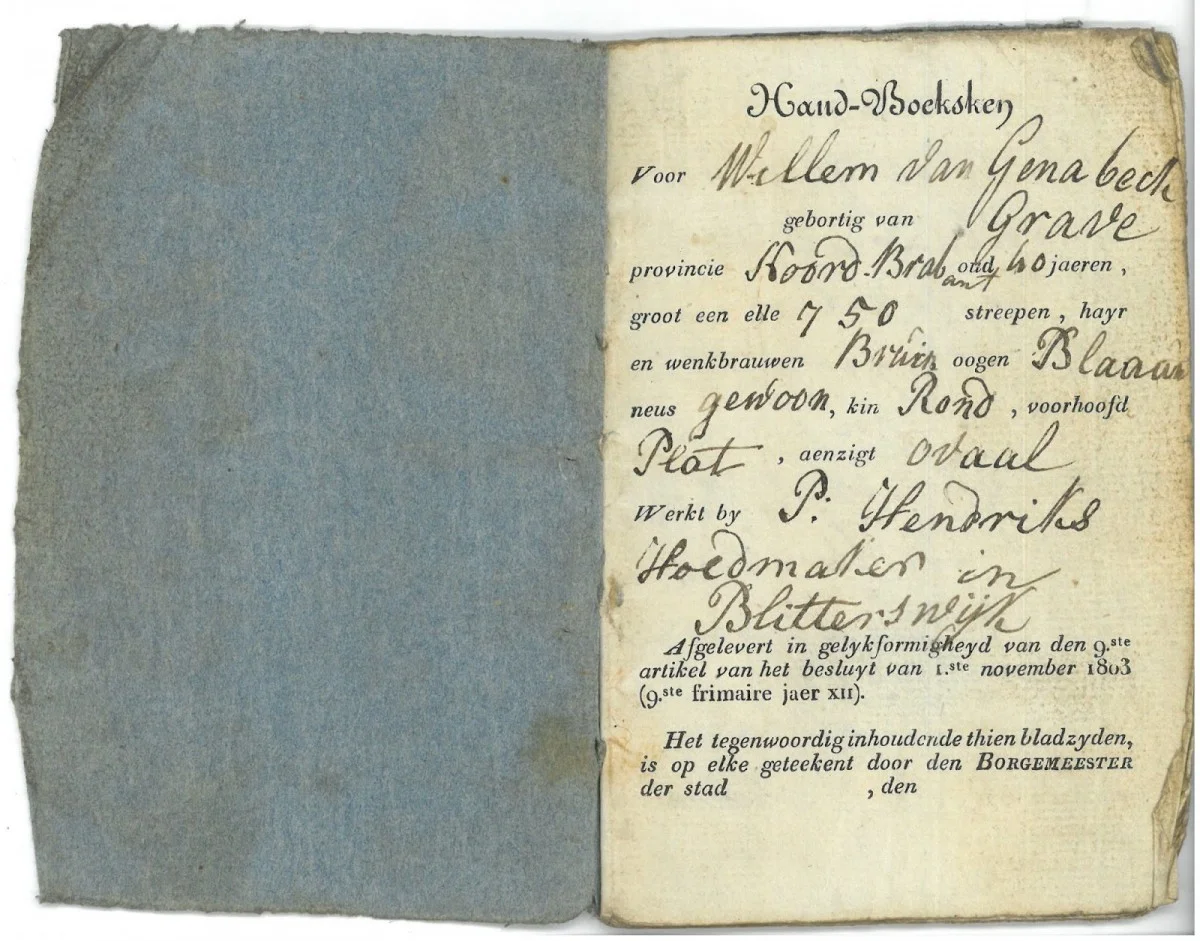 Hand-Boeksken
Voor Willem van Genabeek
gebortig van Grave
provincie Noord-Brabant oud 40 jaeren,
groot een elle 7 50 streepen, hayr
en wenkbrauwen Bruin oogen Blaauw
neus gewoon, kin Rond, voorhoofd
Plat, aenzigt ovaal
Werkt by P: Hendriks
Hoedmaker in
Blitterswijk
Afgelevert in gelykformigheyd van den 9.ste
artikel van het besluyt van 1.ste november 1803
(9.ste frimaire jaer XII).
Het tegenwoordig inhoudende thien bladzyden,
is op elke geteekent door den BORGEMEESTER
der stad , den